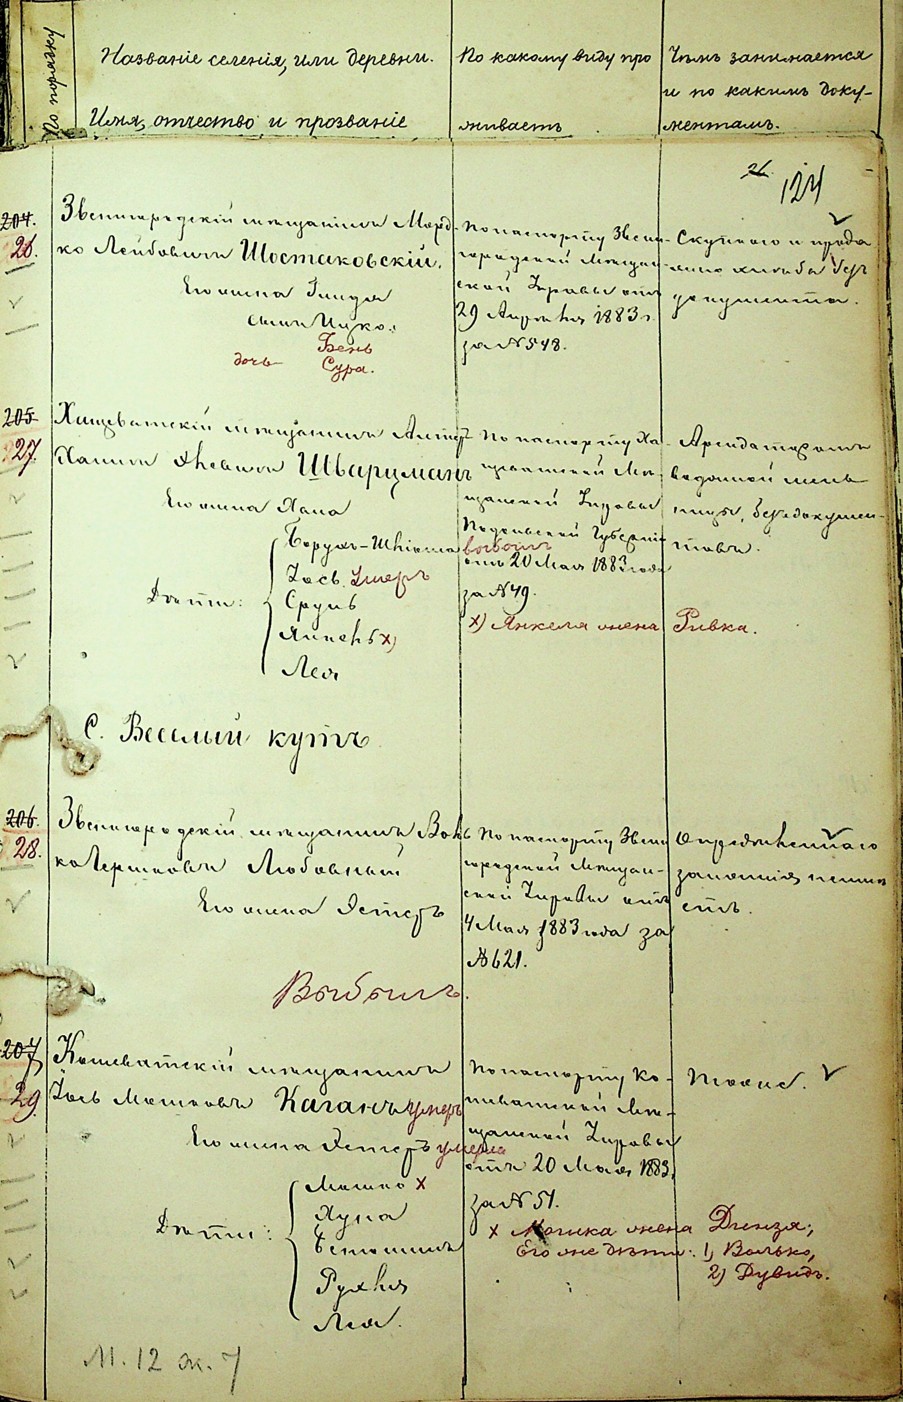 По порядку
Названіе селенія, или деревни.
Имя, отчество и прозваніе
По какому виду про
живаетъ
Чѣмъ занимается
и по какимъ доку-
ментамъ.
26
124
204.
26.
Звенигородскій мѣщанинъ Морд-
ко Лейбовичъ Шостаковскій.
Его жена
сынъ Ицко.
Бень
дочь Сура.
По паспорту Звени-
городской Мѣщан-
ской Управы отъ
29 Апрѣля 1883 г.
за № 548.
и прода
жею хлѣба безъ
документа.
205
27.
Хащеватскій мѣщанинъ
Шварцманъ
Его жена Хана
Дѣти:
Борухъ-Шліома выбылъ
Іось умеръ
Сруль
Янкель x)
Лея
По паспорту Ха-
щеватской Мѣ-
щанской Управы
Подольской Губерніи
отъ 20 Мая 1883 года
за № 49.
x) Янкеля жена Ривка.
Арендаторомъ
водяной мель-
ницы, безъ докумен-
товъ.
С. Веселый кутъ
206
28.
Звенигородскій мѣщанинъ Воль-
ко Гершковъ Любовный
Его жена Эстеръ
Выбылъ.
По паспорту Звени
городской Мѣщан-
ской Управы отъ
4 Мая 1883 года за
№ 621.
Опредѣленнаго
занятія не имѣ
етъ.
207
29.
Кошеватскій мѣщанинъ
Іось Мошковъ Каганъ умеръ
Его жена Эстеръ умерла
Дѣти:
Мошко x
Хуна
Бенюминъ
Рухля
Лея.
По паспорту Ко-
шеватской Мѣ-
щанской Управы
отъ 20 Мая 1883,
за № 51.
Тоже.
x Мошка жена Двейзя;
Его же дѣти: 1) Волько,
2) Дувидъ.
М. 12 ж. 7